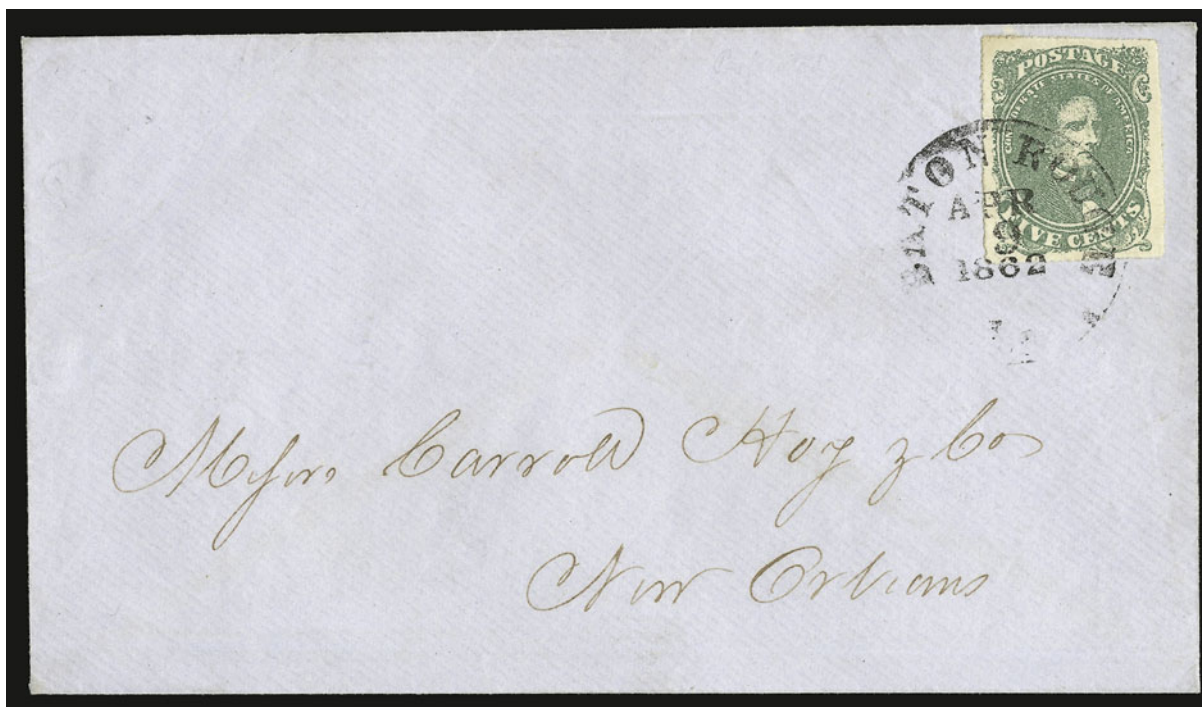 POSTAGE
CONFEDERATE STATES OF AMERICA
FIVE CENTS
BATON ROUGE
APR
9
1862
LA
Messrs Carroll Hoy & Co
New Orleans